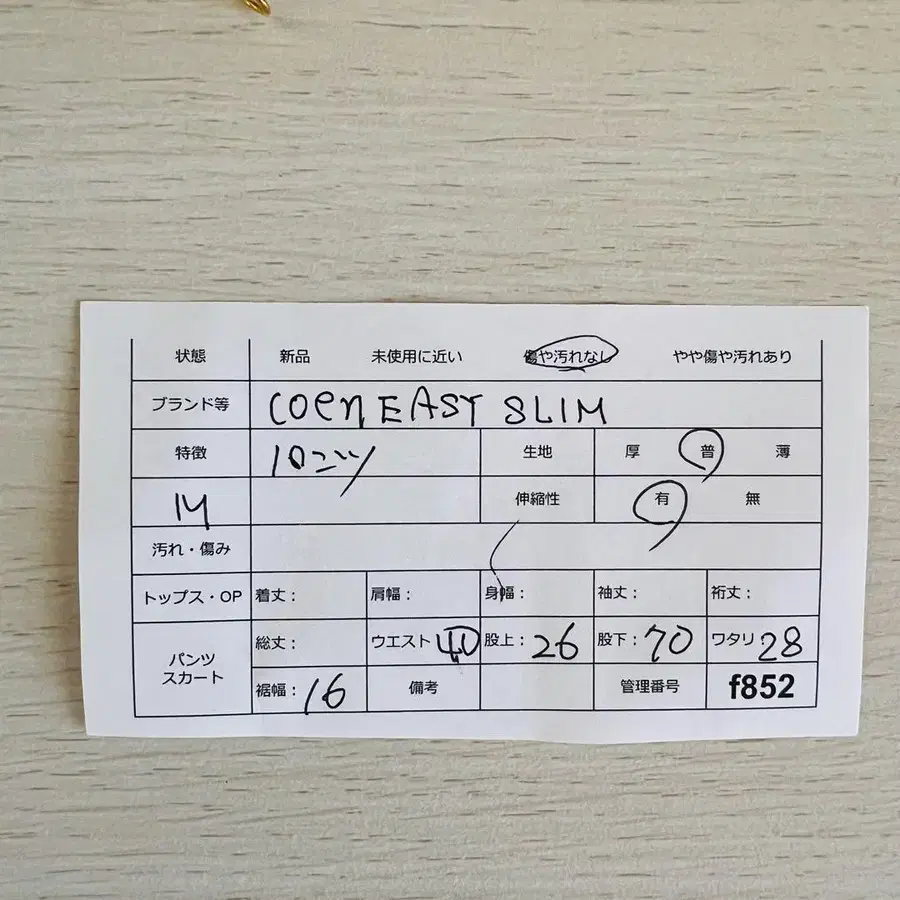 状態 新品 未使用に近い 傷や汚れなし やや傷や汚れあり
ブランド等 coen EASY SLIM
特徴 生地 厚 普 薄
M 伸縮性 有 無
汚れ・傷み
トップス・OP 着丈: 肩幅: 身幅: 袖丈: 裄丈:
パンツ スカート 総丈: ウエスト 40 股上: 26 股下: 70 ワタリ 28
裾幅: 16 備考 管理番号 f852